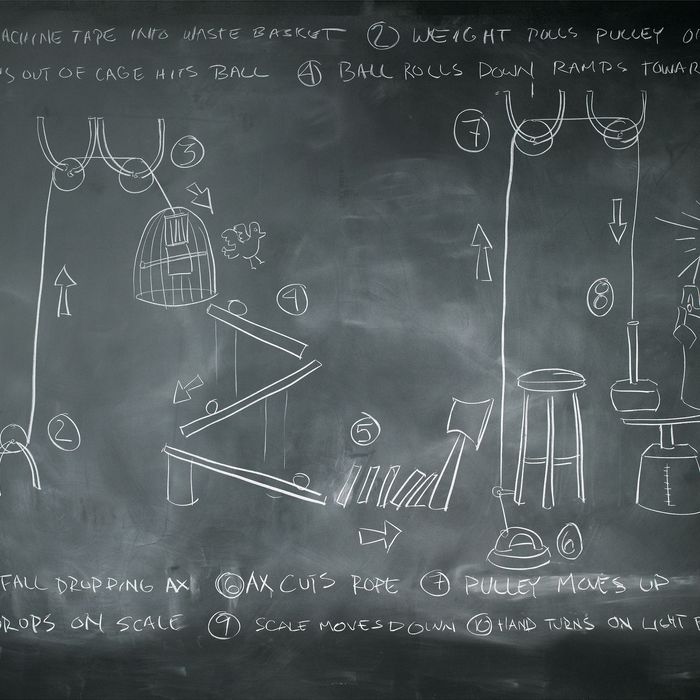 ACHINE TAPE INTO WASTE BASKET ② WEIGHT PULLS PULLEY
S OUT OF CAGE HITS BALL ④ BALL ROLLS DOWN RAMPS TOWAR
⑦
③
8
4
5
2
6
FALL DROPPING AX ⑥ AX CUTS ROPE ⑦ PULLEY MOVES UP
DROPS ON SCALE ⑨ SCALE MOVES DOWN ⑩ HAND TURNS ON LIGHT